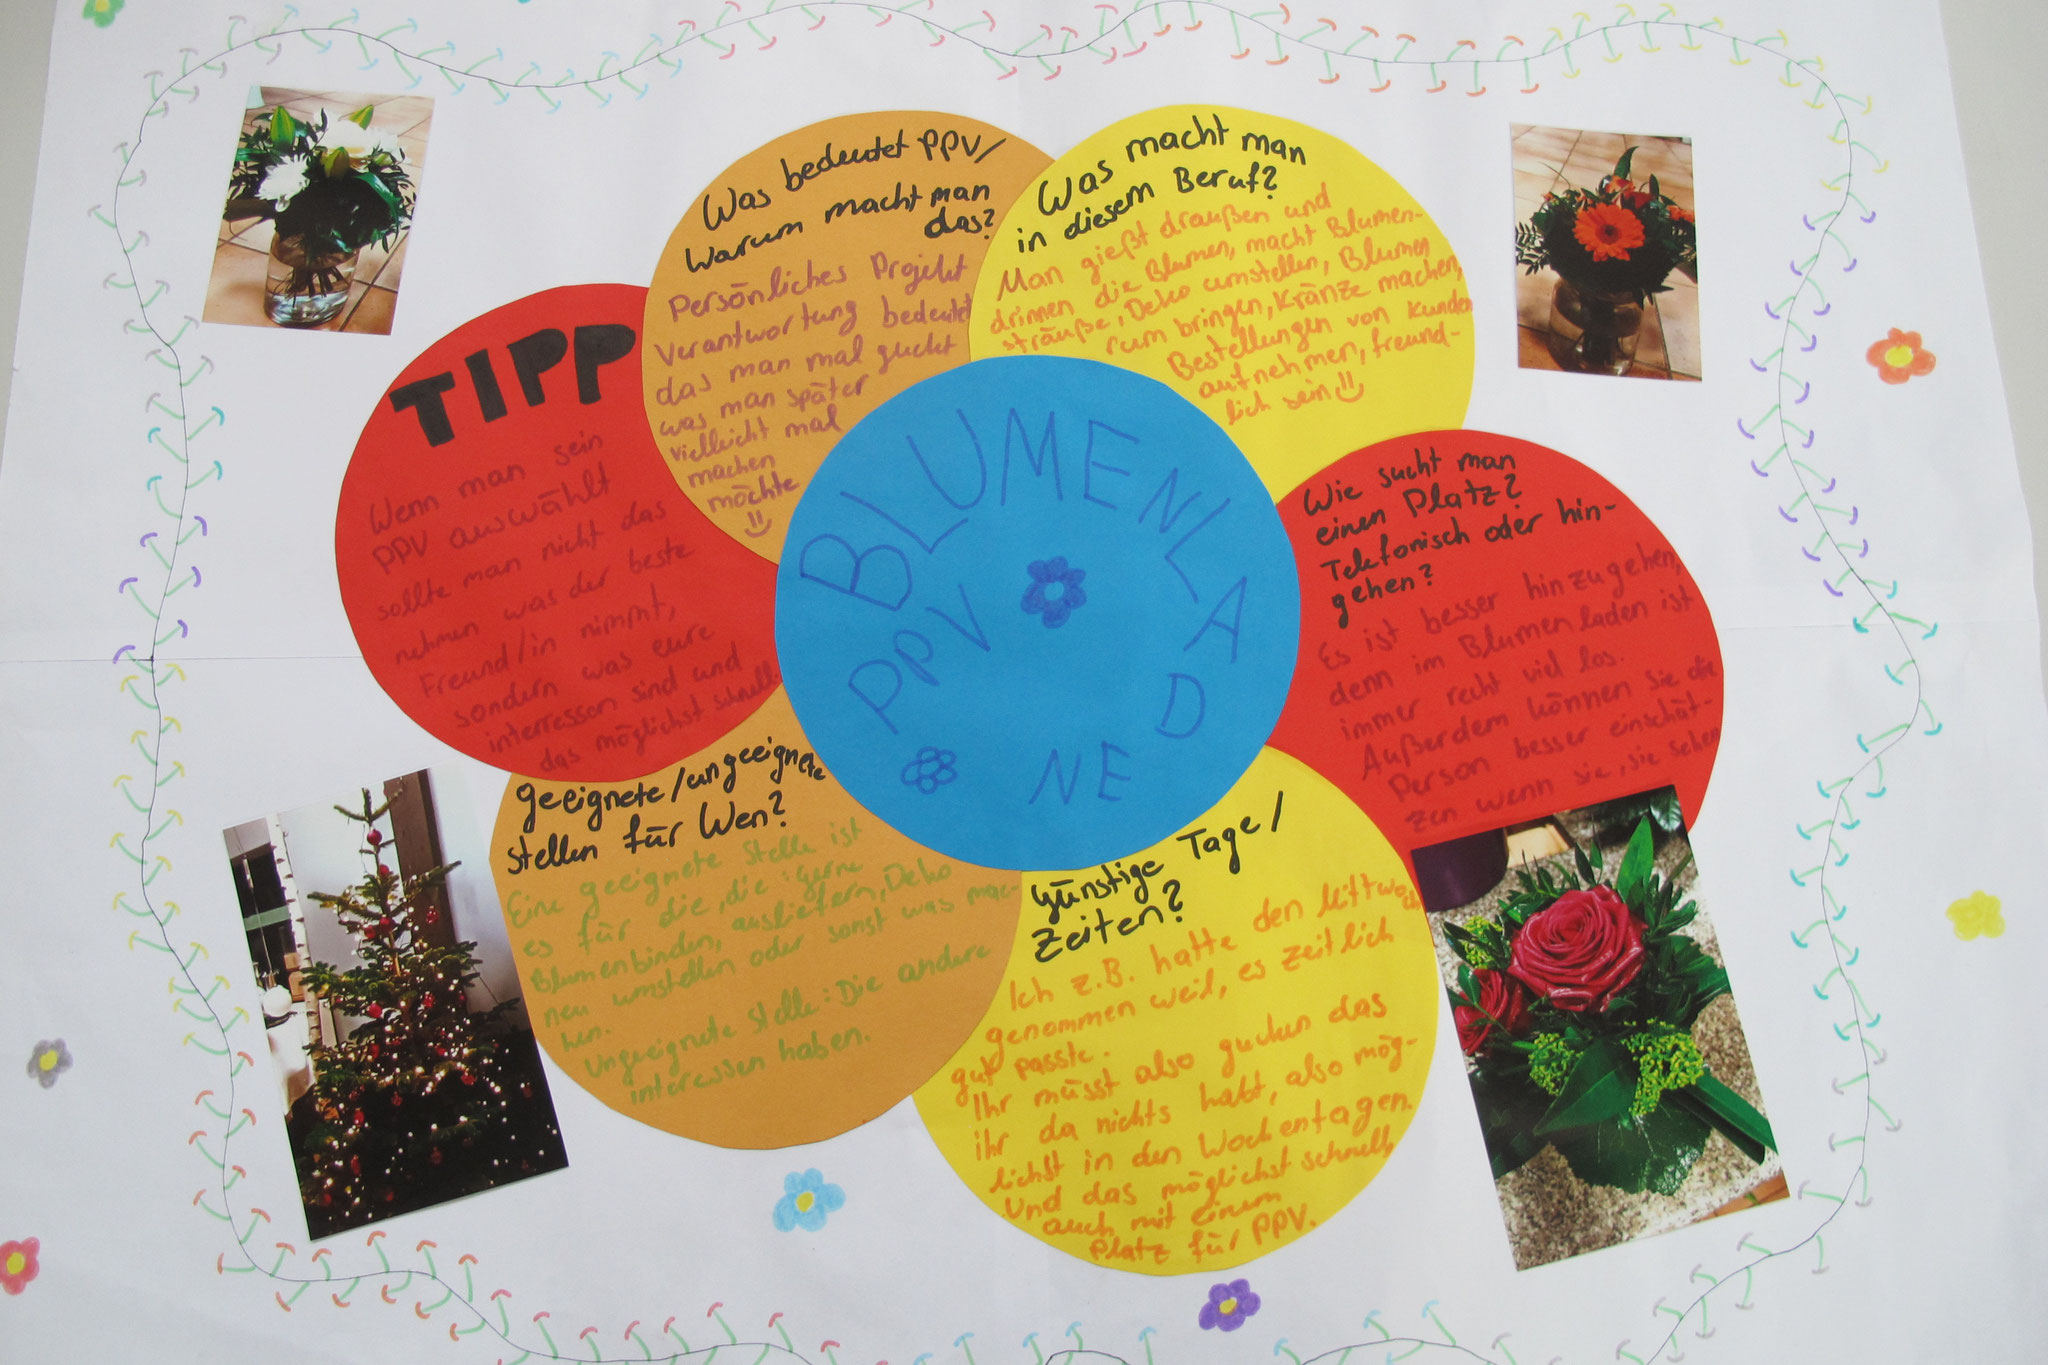 BLUMENLADEN
PPV
TIPP
Wenn man sein
PPV auswählt
sollte man nicht das
nehmen was der beste
Freund/in nimmt,
sondern was eure
interressen sind und
das möglichst schnell.
Was bedeutet PPV/
Warum macht man
das?
Persönliches Projekt
Verantwortung bedeutet
das man mal guckt
was man später
vielleicht mal
machen
möchte
Was macht man
in diesem Beruf?
Man gießt draußen und
drinnen die Blumen, macht Blumen-
sträuße, Deko umstellen, Blumen
rum bringen, Kränze machen,
Bestellungen von Kunden
aufnehmen, freund-
lich sein
Wie sucht man
einen Platz?
Telefonisch oder hin-
gehen?
Es ist besser hinzugehen,
denn im Blumenladen ist
immer recht viel los.
Außerdem können sie die
Person besser einschät-
zen wenn sie, sie sehen
geeignete/ungeeignete
stellen für Wen?
Eine geeignete Stelle ist
es für die, die: gerne
Blumenbinden, ausliefern, Deko
neu umstellen oder sonst was mac-
hen.
Ungeeignete Stelle: Die andere
interessen haben.
Günstige Tage/
Zeiten?
Ich z.B. hatte den Mittwoch
genommen weil, es zeitlich
gut passte.
Ihr müsst also gucken das
ihr da nichts habt, also mög-
lichst in den Wochentagen.
Und das möglichst schnell,
auch mit einem
Platz für PPV.